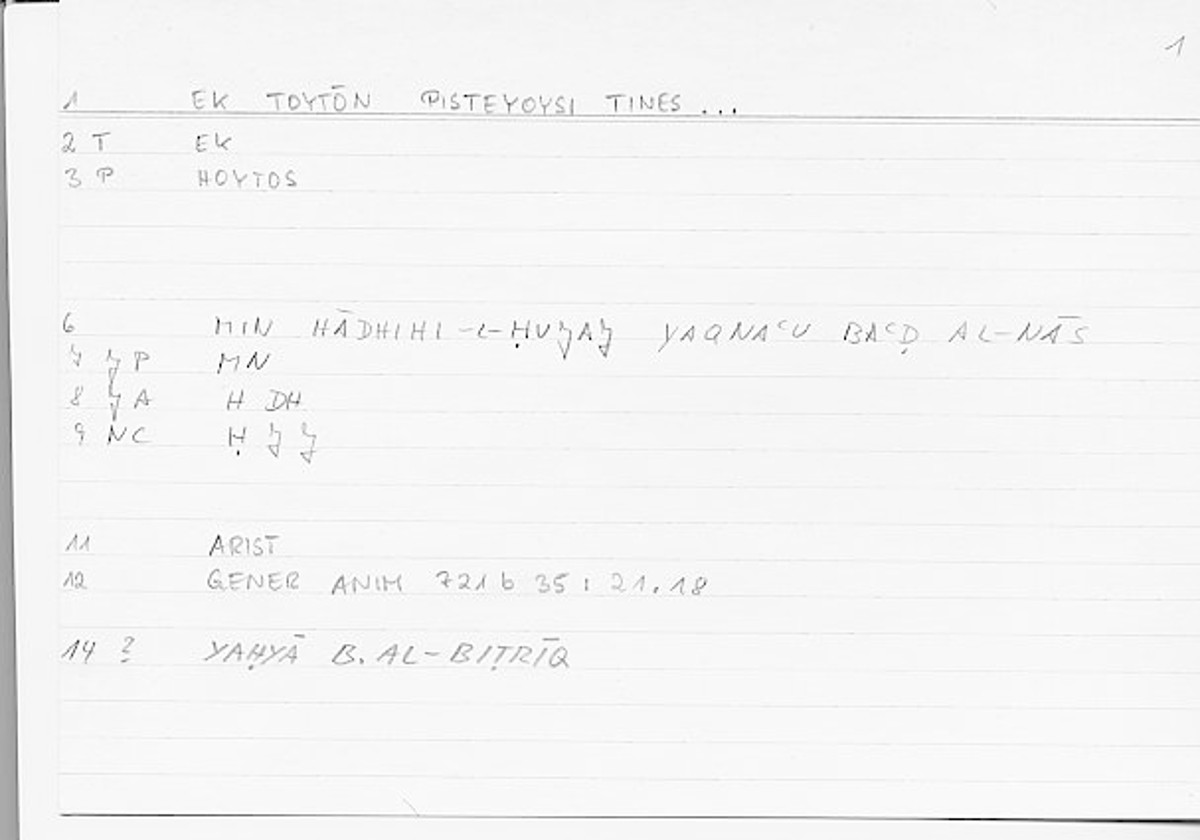 1
1 EK TOYTŌN PISTEYOYSI TINES ...
2 T EK
3 P HOYTOS
6 MIN HĀDHIHI -L-ḤUJAJ YAQNAᶜU BAᶜḌ AL-NĀS
7 JP MN
8 JA H DH
9 NC Ḥ J J
11 ARIST
12 GENER ANIM 721 b 35 : 21.18
14 ? YAḤYĀ B. AL-BIṬRĪQ